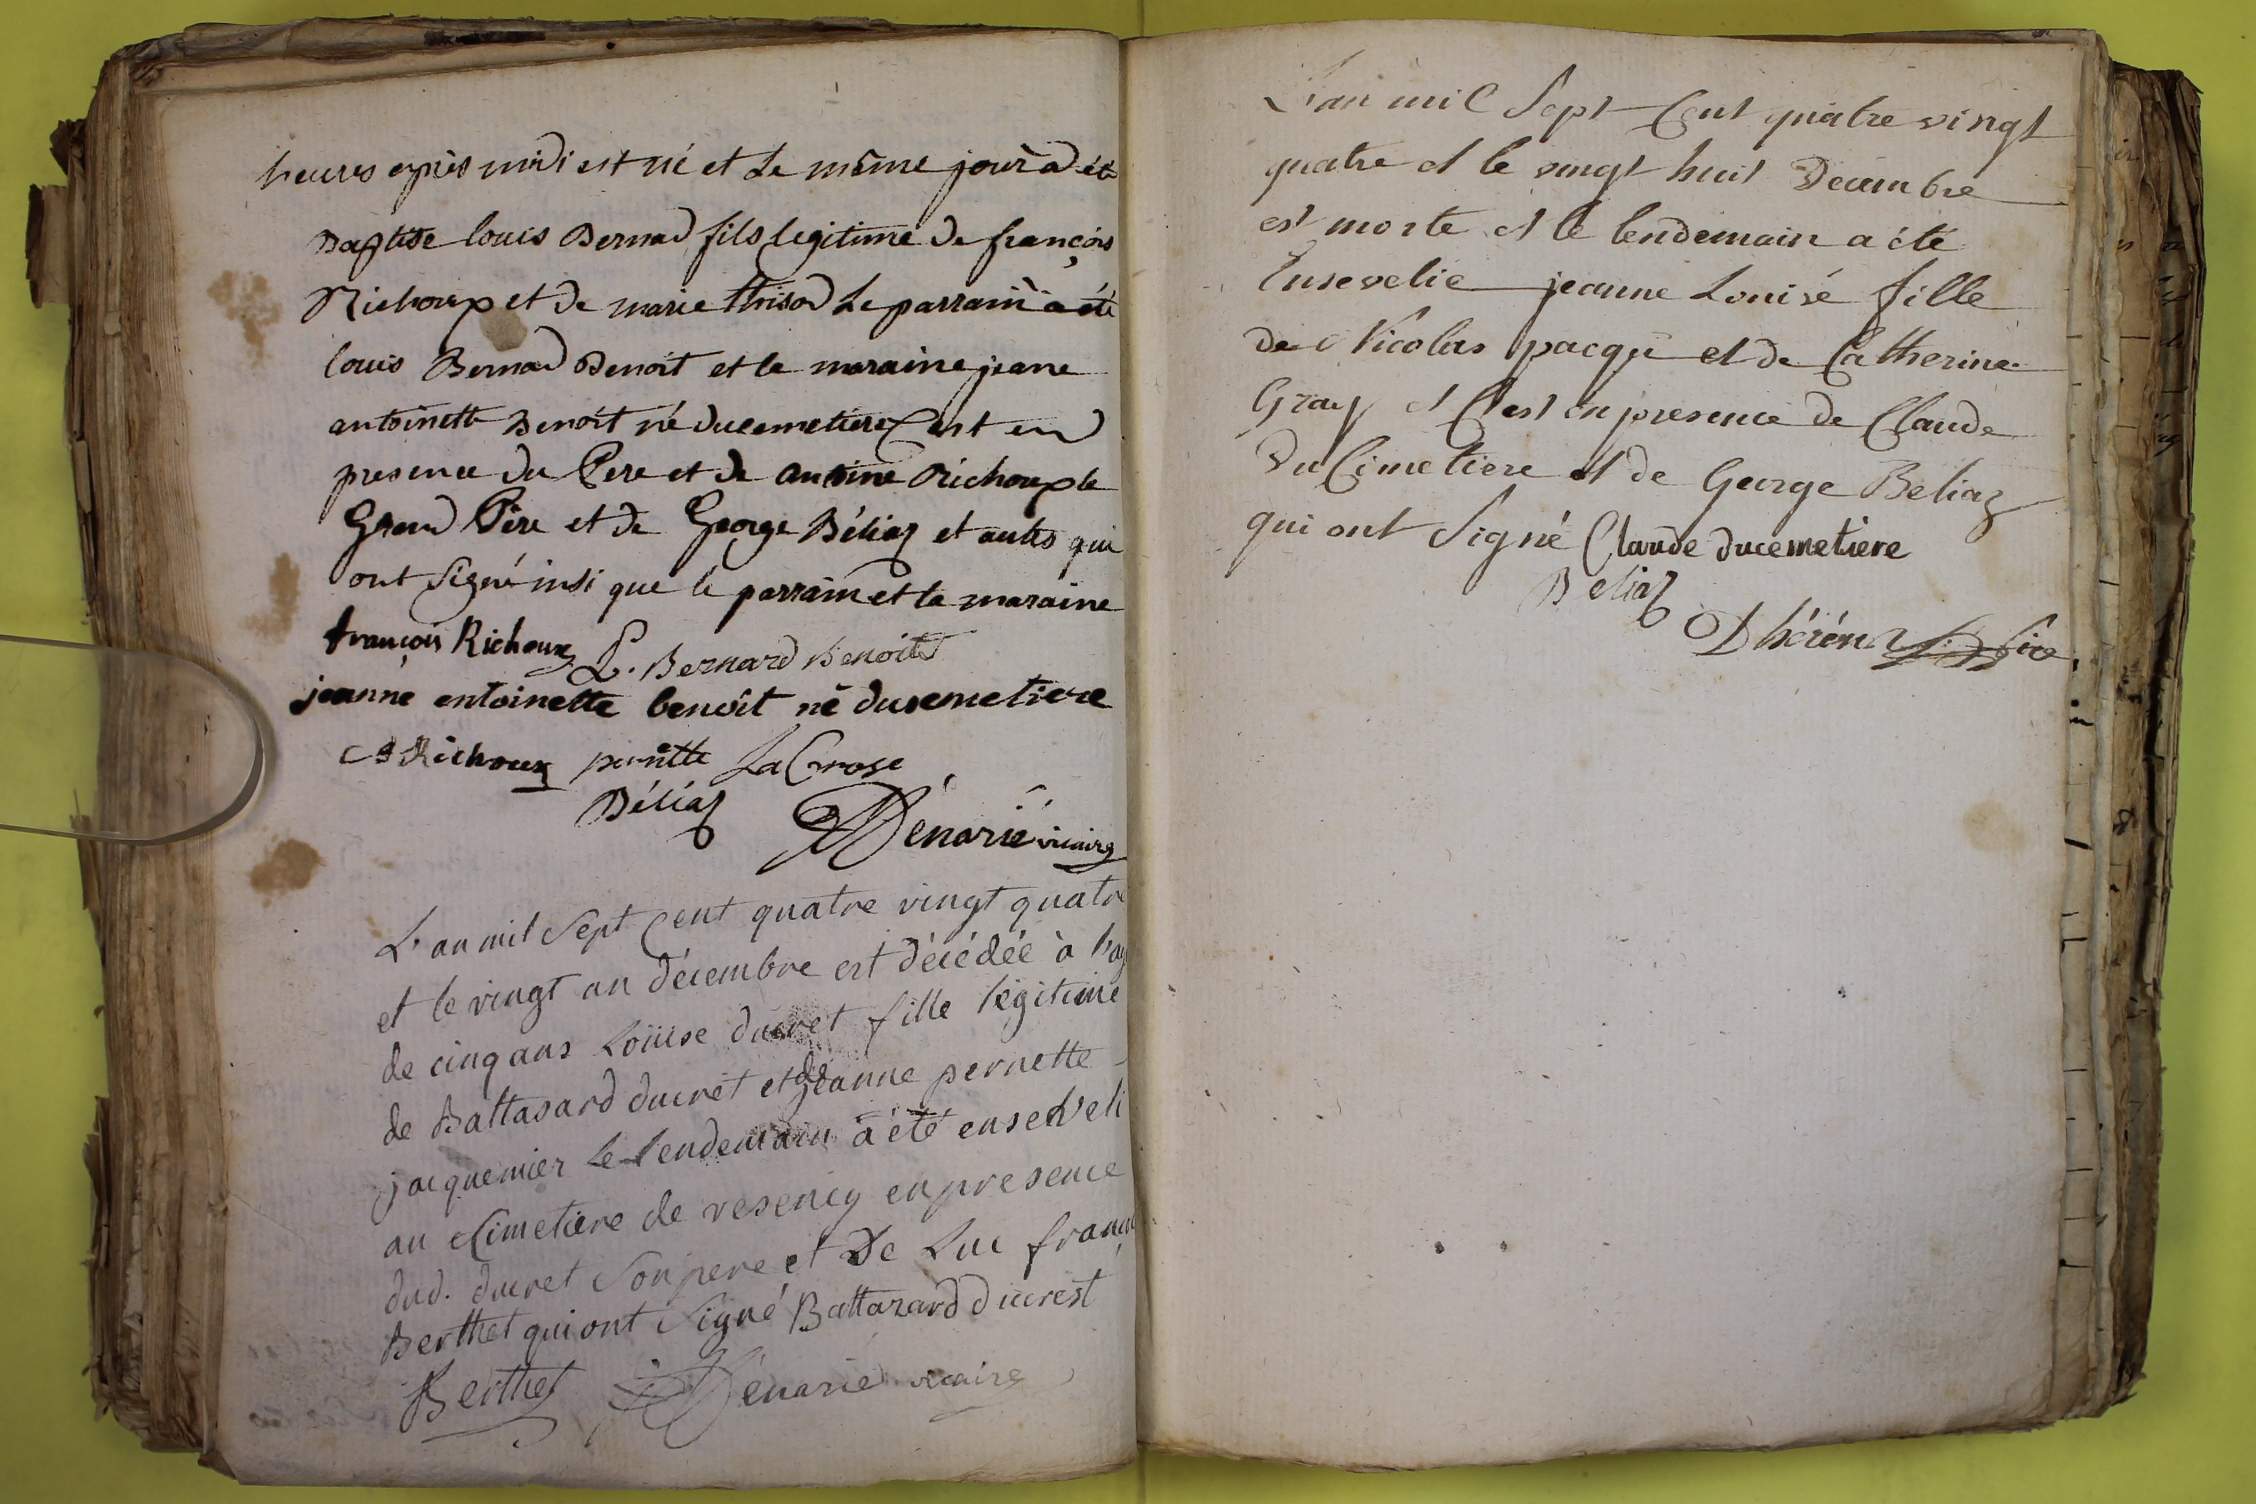 heures après midi est né et le même jour a été
Baptisé louis Bernad fils legitime de françois
Richoux et de marie le parrain a été
louis Bernad Benoit et la maraine jeane
antoinette Benoît né ducemetiere C'est en
presence du Pere et de antoine Richoux le
Grand Père et de George Béliaz et autrs qui
ont signé insi que le parrain et la maraine
françois Richoux L. Bernard Benoit
jeanne entoinette benoît né ducemetiere
Richoux pernette LaCrose
Béliaz Dénarié vicaire
L'an mil sept cent quatre vingt quatre
et le vingt un décembre est décédée à l'ag
de cinq ans Loüise ducret fille légitime
de Baltasard ducret et de Jeanne pernette
jacquemier le lendemain a été enseveli
au Cimetiere de vesency en presence
dud. ducret son pere et De Luc françois
Berthet qui ont signé Baltazard ducrest
Berthet Dénarié vicaire
L'an mil sept Cent quatre vingt
quatre et le vingt huit Decembre
est morte et le lendemain a été
Ensevelie jeanne Louise fille
de Nicolas pacqu et de Catherine
Gray et C'est en presence de Claude
Du Cimetiere et de George Béliaz
qui ont signé Claude ducemetiere
Béliaz
Dhérens